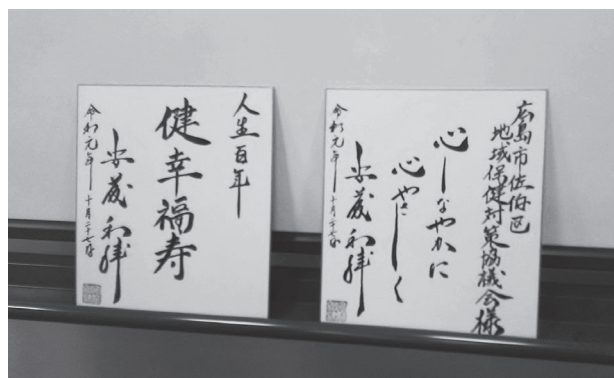 人生百年
健幸福寿
安藏和彦
令和元年十月二十七日
広島市佐伯区
地域保健対策協議会様
心しなやかに
心やさしく
令和元年十月二十七日